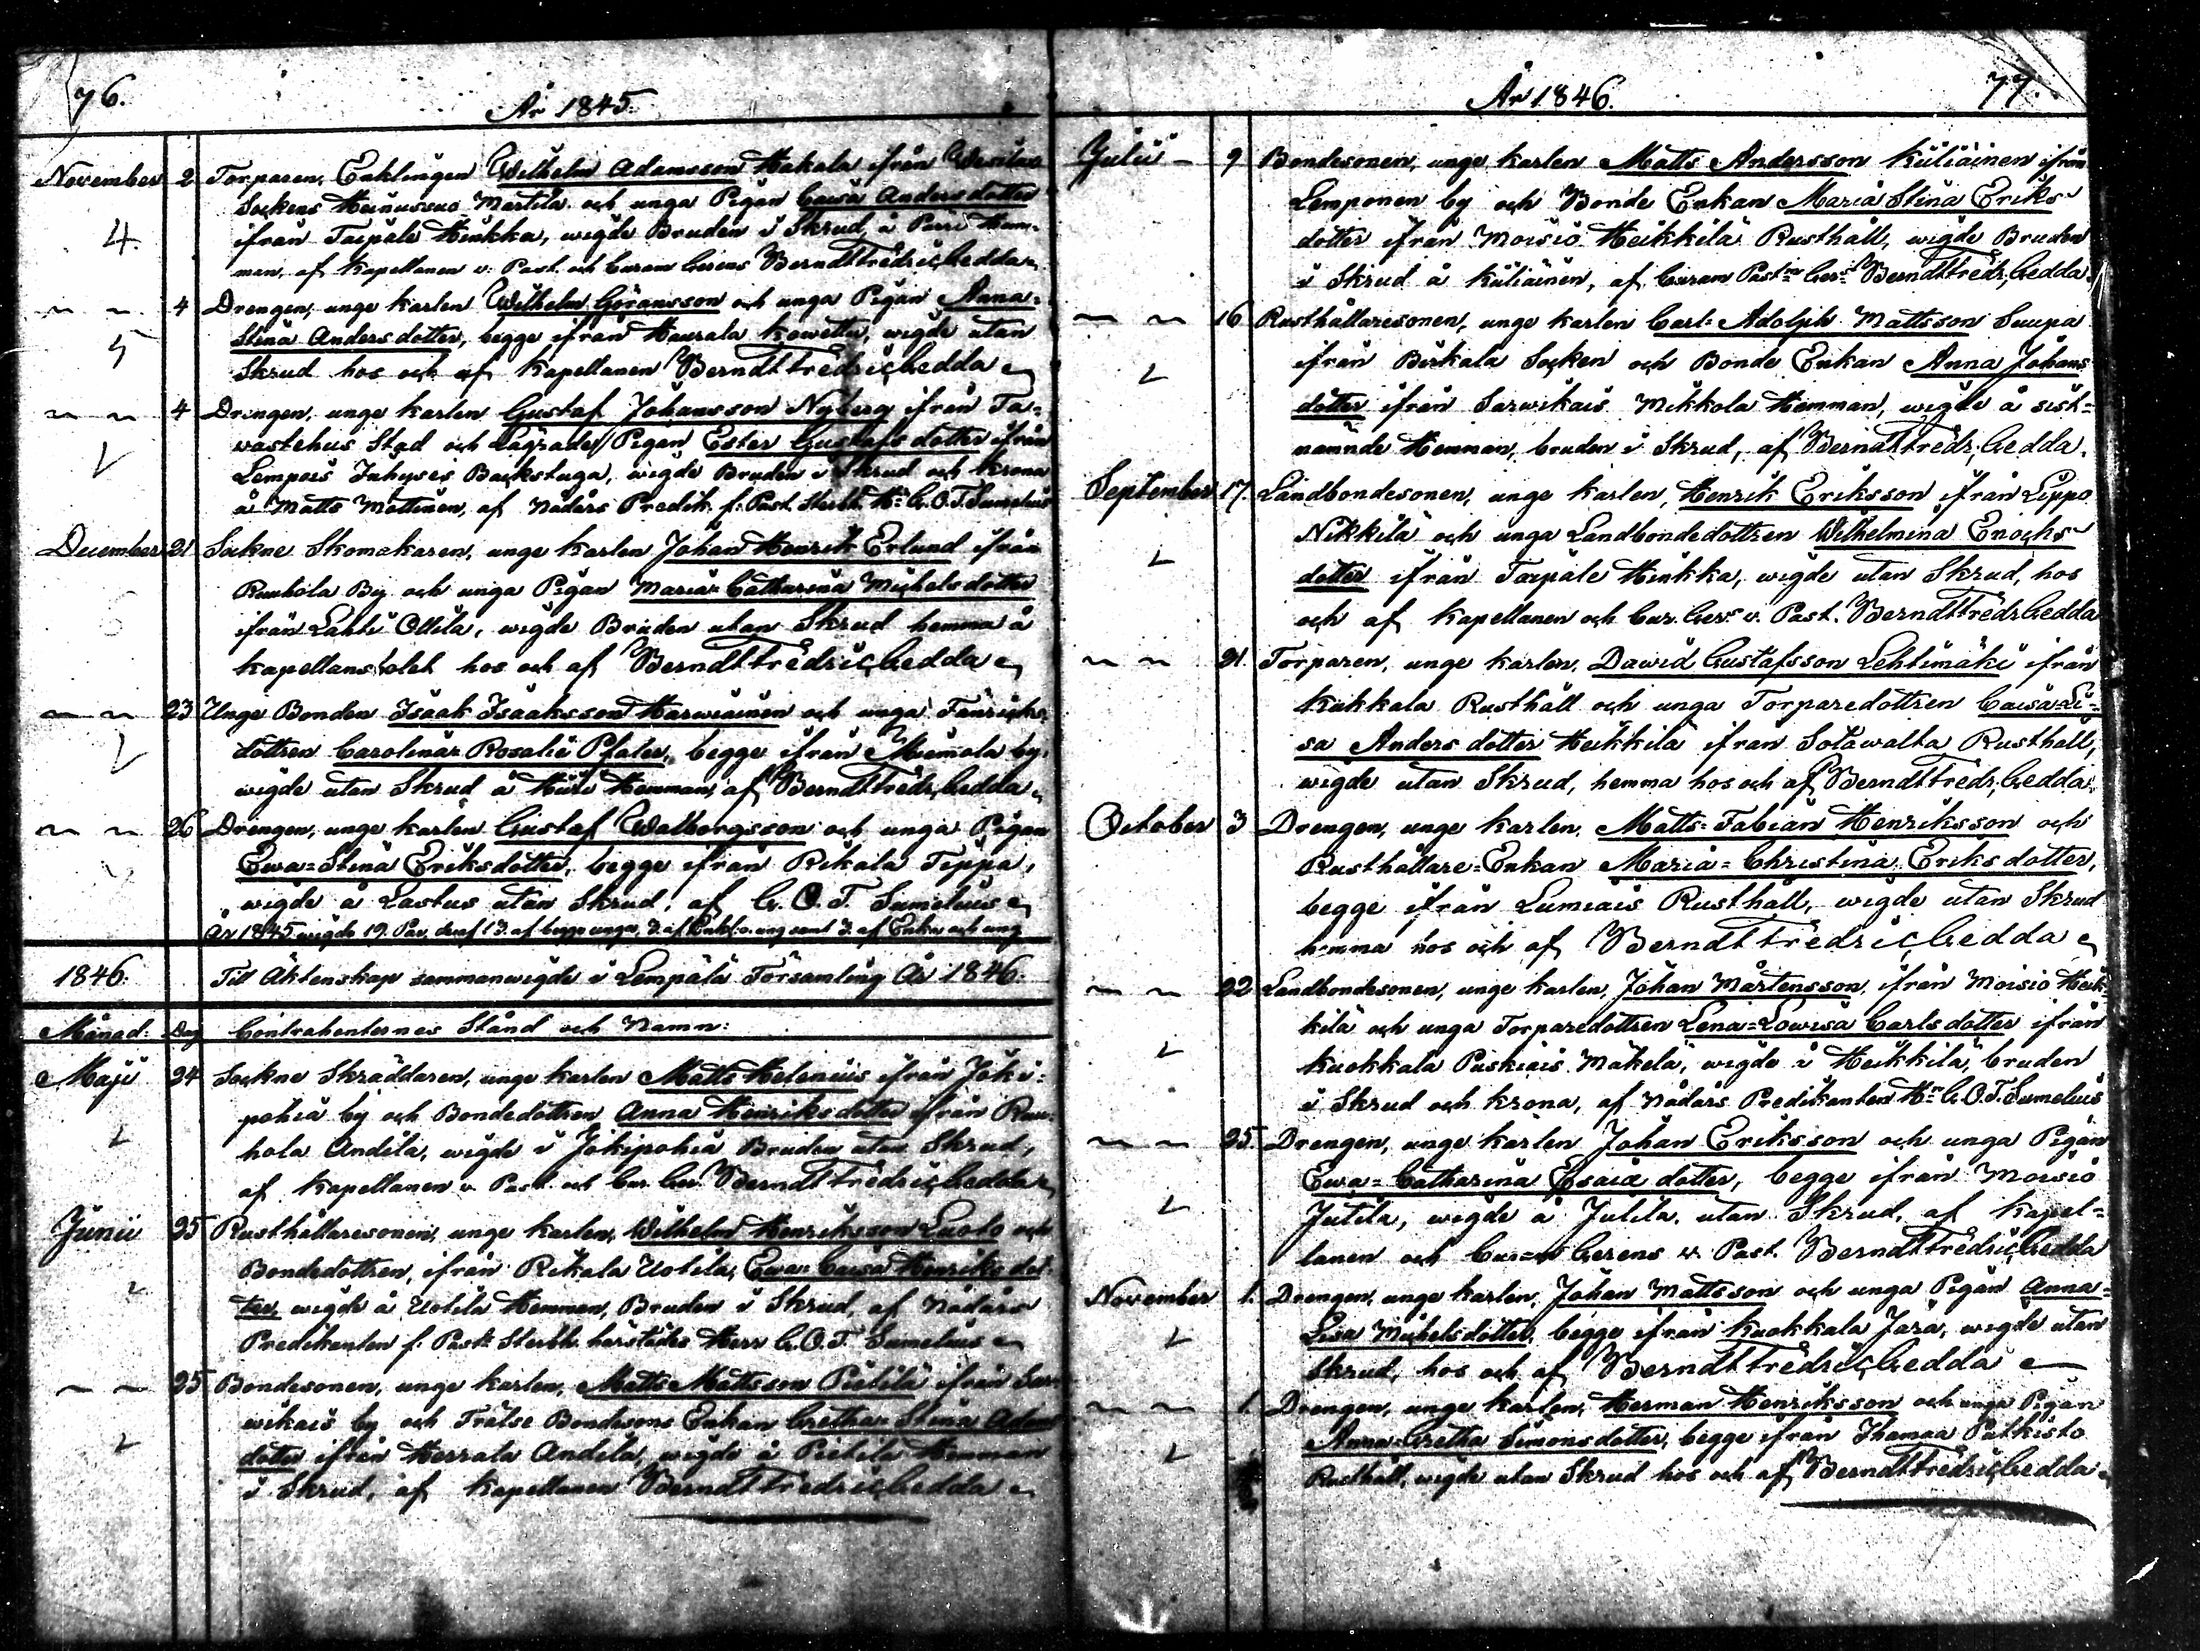 76.
År 1845.
November 2 Torparen, Enklingen Wilhelm Adamsson Hakala ifrån Wesilax
Sockens Heinussuo Mertila och unga Pigan Caisa Andersdotter
4 ifrån Taipale Heikka, wigde Bruden i Skrud, å Hem-
man, af Kapellanen v. Past. och Curam Gerens Berndt Fredric Gedda
~ ~ 4 Drengen, unge karlen Wilhelm Göransson och unga Pigan Anna-
5 Stina Andersdotter, begge ifrån Haurala Kowetta, wigde utan
Skrud hos och af Kapellanen Berndt Fredric Gedda
~ ~ 4 Drengen, unge karlen Gustaf Johansson Nyberg ifrån Ta-
wastehus Stad och Lägrade Pigan Ester Gustafsdotter ifrån
Lempois Backstuga, wigde Bruden i Skrud och Krona
å Matts Mattinen, af Nådårs Predik. f. Past. Sterbh. Hr G. O. T. Sumelius
December 21 Sockne Skomakaren, unge karlen Johan Henrik Erlund ifrån
Ruuhola By och unga Pigan Maria Catharina Michelsdotter
6 ifrån Lahti Ollila, wigde Bruden utan Skrud hemma å
kapellansbolet hos och af Berndt Fredric Gedda
~ ~ 23 Unge Bonden Isaak Isaaksson Harwiainen och unga Fänricks-
dottren Carolina Rosalie Pfaler, begge ifrån Miemola by,
wigde utan Skrud å Hemman, af Berndt Fredr. Gedda
~ ~ 26 Drengen, unge karlen Gustaf Walborgsson och unga Pigan
Ewa-Stina Eriksdotter, begge ifrån Rikala Teppa,
wigde å Lastus utan Skrud, af G. O. T. Sumelius
År 1845 wigde 19 Par, deraf 13 af begge unga, 3 af Enkl. o. ung samt 3 af Enka och ung
1846. Till Äktenskap sammanwigde i Lempälä Församling År 1846.
Månad. Dag Contrahenternes Stånd och Namn:
Maji 24 Sockne Skräddaren, unge karlen Matts Helenius ifrån Joki-
pohja by och Bondedottren Anna Henriksdotter ifrån Ruu-
hola Andila, wigde i Jokipohia Bruden utan Skrud,
af Kapellanen v. Past. och Cur. Ger. Berndt Fredric Gedda
Junii 25 Rusthållaresonen, unge karlen, Wilhelm Henriksson Luoto och
Bondedottren, ifrån Rikala Uotila, Ewa Caisa Henriksdot-
ter, wigde å Uotila Hemman, Bruden i Skrud, af Nådårs
Predikanten f. Past. Sterbh. härstädes Herr G. O. T. Sumelius
~ ~ 25 Bondesonen, unge karlen, Matts Mattsson Pietilä ifrån Sar-
wikais by och Frälse Bondesons Enkan Gretha Stina Adams
dotter ifrån Herrala Andila, wigde å Pietilä Hemman
i Skrud, af Kapellanen Berndt Fredric Gedda
77.
År 1846.
Julii 9 Bondesonen, unge karlen Matts Andersson Kuliainen ifrån
Lemponen by och Bonde Enkan Maria Stina Eriks-
dotter ifrån Moisio Heikkilä Rusthåll, wigde Bruden
i Skrud å Kuliainen, af Curam Past. Ger. Berndt Fredr. Gedda.
~ ~ 16 Rusthållaresonen, unge karlen Carl Adolph Mattsson Suupa
ifrån Birkala Socken och Bonde Enkan Anna Johans
dotter ifrån Sarwikais Mikkola Hemman, wigde å sist-
nämnde Hemman, bruden i Skrud, af Berndt Fredr. Gedda.
September 17. Landbondesonen, unge karlen, Henrik Eriksson ifrån Lippo
Nikkilä och unga Landbondedottren Wilhelmina Enochs-
dotter ifrån Taipale Heikka, wigde utan Skrud, hos
och af Kapellanen och Cur. Ger. v. Past. Berndt Fredr. Gedda
~ ~ 21. Torparen, unge karlen, Dawid Gustafsson Lehtimäki ifrån
Kukkala Rusthåll och unga Torparedottren Caisa Li-
sa Anders dotter Heikkilä ifrån Sotawalta Rusthåll,
wigde utan Skrud, hemma hos och af Berndt Fredr. Gedda.
October 3 Drengen, unge karlen, Matts-Fabian Henriksson och
Rusthållare-Enkan Maria-Christina Eriksdotter,
begge ifrån Lumiais Rusthåll, wigde utan Skrud
hemma hos och af Berndt Fredric Gedda
~ ~ 22 Landbondesonen, unge karlen, Johan Mårtensson, ifrån Moisio Heik-
kilä och unga Torparedottren Lena-Lowisa Carlsdotter ifrån
Kuokkala Puskiais Mäkelä, wigde å Heikkilä, bruden
i Skrud och krona, af Nådårs Predikanten Hr G. O. T. Sumelius
~ ~ 25. Drengen, unge karlen Johan Eriksson och unga Pigan
Ewa-Catharina Esaiæ dotter, begge ifrån Moisio
Jutila, wigde å Jutila, utan Skrud, af Kapel-
lanen och Cur=m Gerens v. Past. Berndt Fredric Gedda
November 1. Drengen, unge karlen, Johan Mattsson och unga Pigan Anna-
Lisa Michelsdotter, begge ifrån Kuokkala Jara, wigde utan
Skrud, hos och af Berndt Fredric Gedda
~ ~ 1. Drengen, unge karlen, Herman Henriksson och unga Pigan
Anna-Gretha Simonsdotter, begge ifrån Ihamaa Patkisto
Rusthåll, wigde utan Skrud hos och af Berndt Fredric Gedda